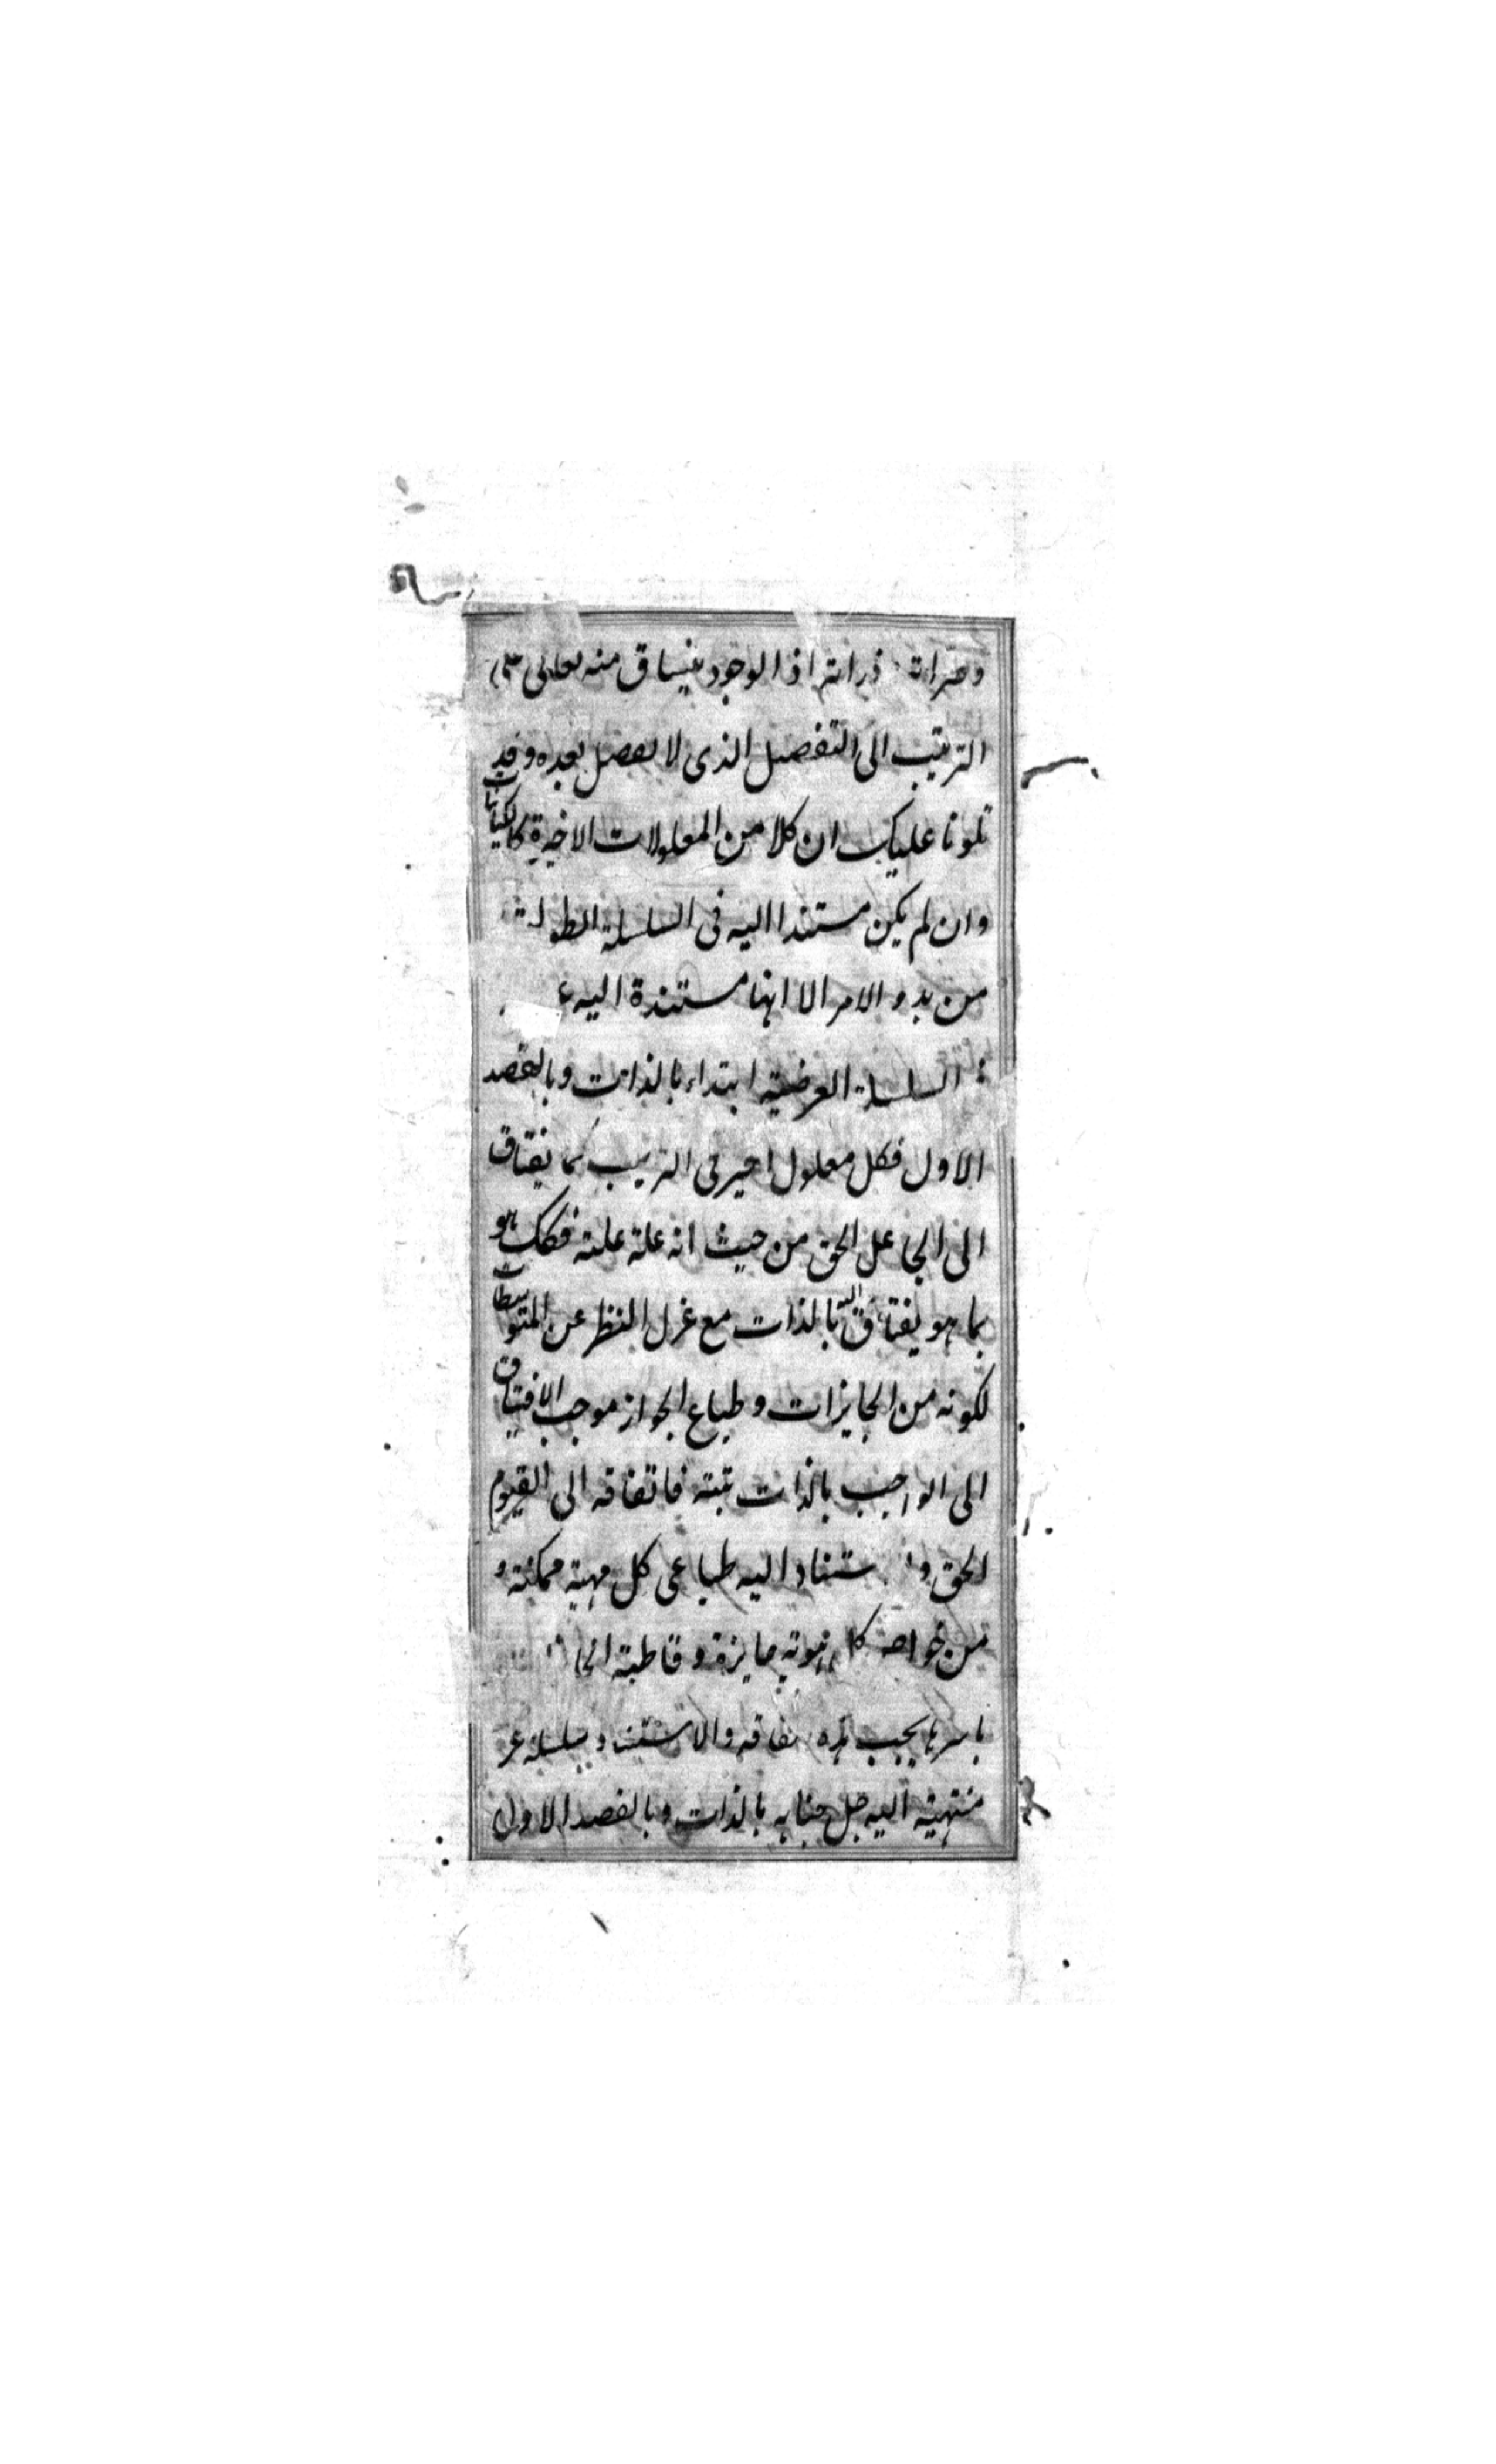 الوجود ينساق منه تعالى على
الترتيب الى التفصيل الذى لا تفصيل بعده وقد
تلونا عليك ان كلا من المعلولات الاخيرة كالكيانيات
وان لم يكن مستندا اليه فى السلسلة الطولية
من بدو الامر الا انها مستندة اليه
السلسلة العرضية ابتداء بالذات وبالقصد
الاول فكل معلول اخير فى الترتيب كما يفتاق
الى الجاعل الحق من حيث انه علة علته فكك ما هو
بما هو يفتاق اليه بالذات مع عزل النظر عن المتوسطات
لكونه من الجايزات وطباع الجواز موجب الافتياق
الى الواجب بالذات بتة فاتفاقه الى القيوم
الحق و ستناد اليه طباعى كل مهية ممكنة و
من خواص كل هوية جايزة وقاطبة
باسرها يجب هذه والاستناد سلسلة
منتهية اليه جل جنابه بالذات وبالقصد الاول